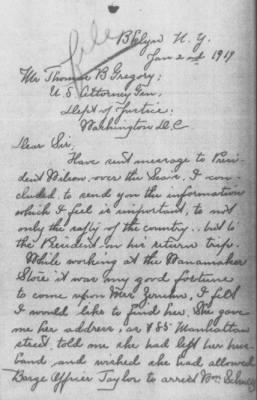 File
Bklyn N. Y.
Jan 2nd 1919
Mr Thomas B Gregory;
U. S. Attorney Gen.
Dept of Justice.
Washington D.C
Dear Sir;
Have sent message to Presi-
dent Wilson, over the Seas. I con-
cluded to send you the information
which I feel is important, to not
only the safty of the country. but to
the President on his return trip.
While working at the Wanamaker
Store it was my good fortune
to come upon Mrs, I felt
I would like to find her. She gave
me her address, as 85 Manhattan
street, told me she had left her hus-
band, and wished she had allowed
Barge Officer Taylor to arrest Wm